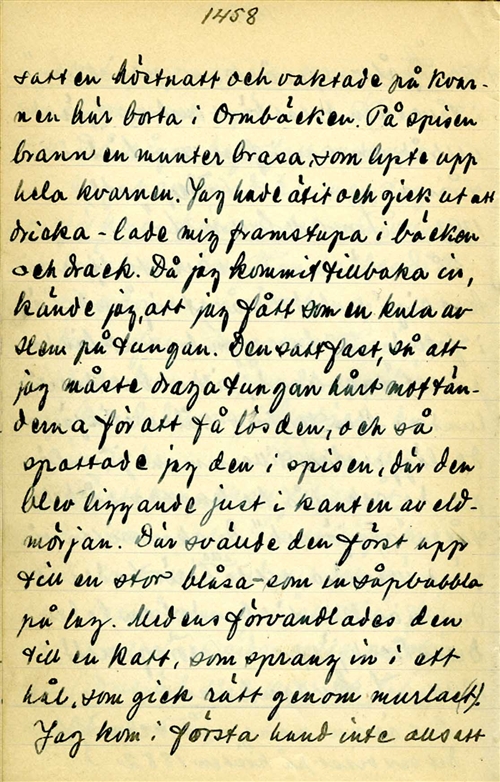 1458
satt en höstnatt och vaktade på kvar-
nen här borta i Ormbäcken. På spisen
brann en munter brasa, som lyste upp
hela kvarnen. Jag hade ätit och gick ut att
dricka - lade mig framstupa i bäcken
och drack. Då jag kommit tillbaka in,
kände jag, att jag fått som en kula av
slem på tungan. Den satt fast, så att
jag måste draga tungan hårt mot tän-
derna för att få lös den, och så
spottade jag den i spisen, där den
blev liggande just i kanten av eld-
mörjan. Där svällde den först upp
till en stor blåsa - som en såpbubbla
på lag. Med ens förvandlades den
till en katt, som sprang in i ett
hål, som gick rätt genom murla(t).
Jag kom i första hand inte alls att